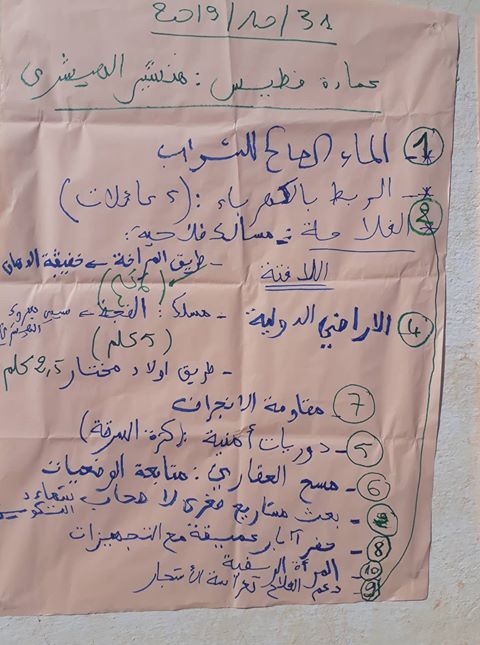 2019/10/31
عمادة فطيس : هنشير القصيشري
1 - الماء الصالح للشراب
- الربط بالكهرباء : (2 عائلات)
2 الفلاحة : مسالك فلاحية :
- طريق المراخة ← خفيفة
اللافتة
4 الاراضي الدولية
- مسلك : الفجة ← سيدي مبروك
(5 كلم)
- طريق اولاد مختار 2,5 كلم
7 - مقاومة الانجراف
5 - دوريات أمنية : (كثرة السرقة)
6 - مسح العقاري : متابعة الوضعيات
- بعث مشاريع صغرى لاصحاب شهاءد
8 - حفر آبار عميقة مع التجهيزات
10 المرأة الريفية
9 دعم الفلاح غراسة الأشجار